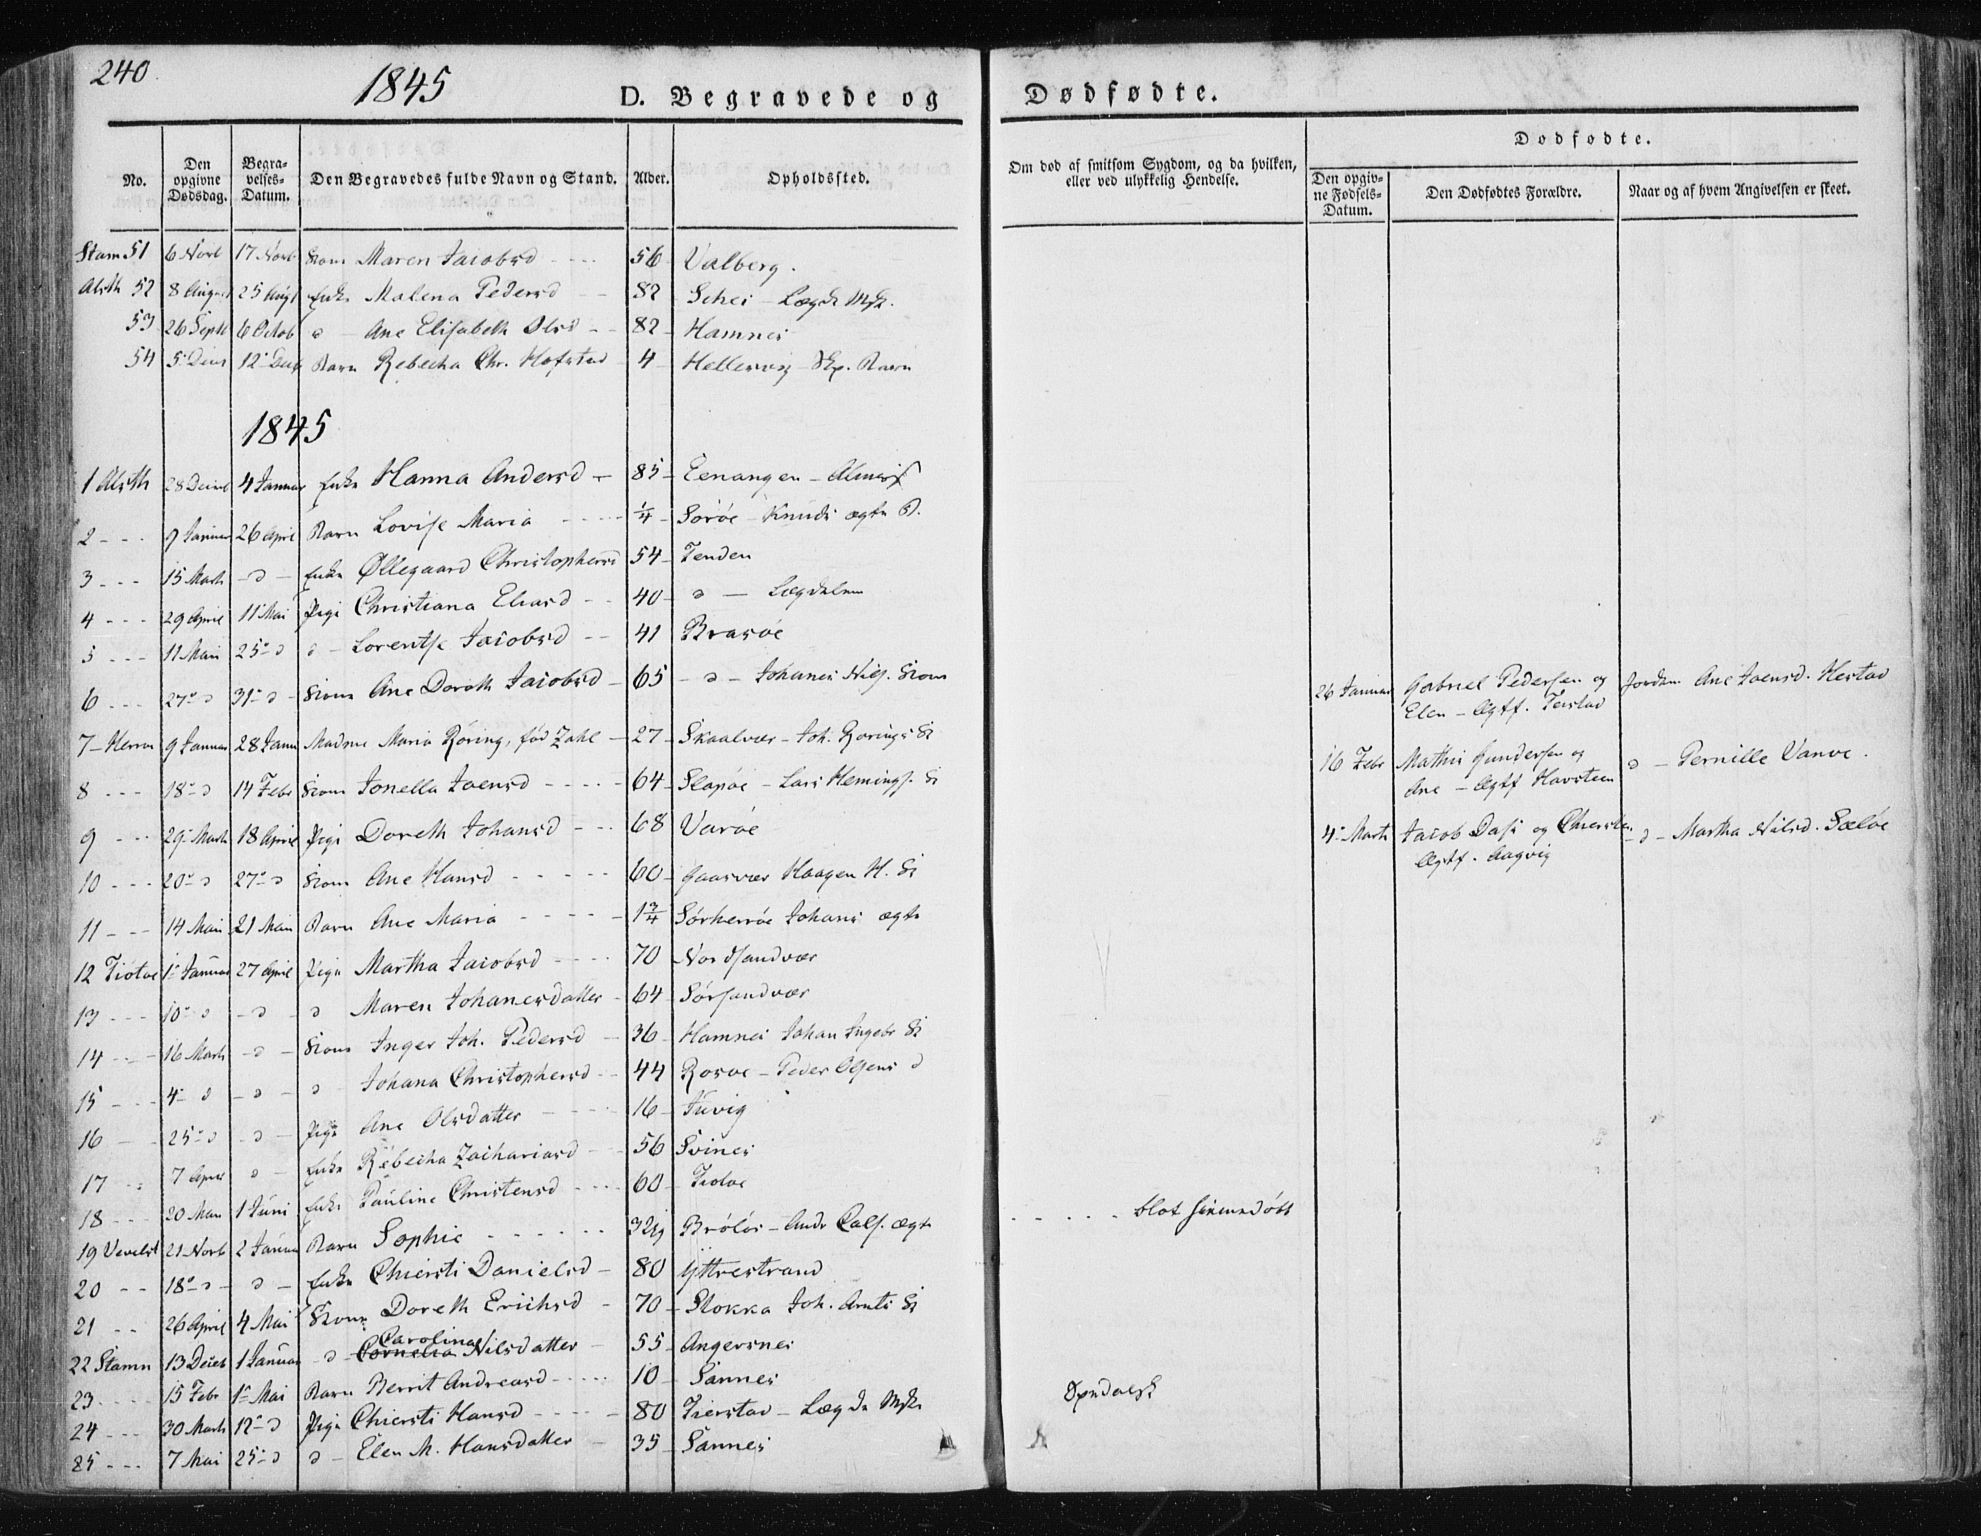 240.
1845
D. Begravede og Dødfødte.
No. | Den opgivne Dødsdag. | Begravelses-Datum. | Den Begravedes fulde Navn og Stand. | Alder. | Opholdssted. | Om død af smitsom Sygdom, og da hvilken, eller ved ulykkelig Hendelse. | Dødfødte. | Den opgivne Fødsels-Datum. | Den Dødfødtes Forældre. | Naar og af hvem Angivelsen er skeet.
Stamn 51 | 6 Novb | 17 Novb | Kone Maren Jacobsd | 56 | Valberg.
Alsth 52 | 8 August | 25 Augt | Enke Malena Pedersd | 82 | Schei - Lægd
53 | 26 Septb | 6 Octob | d - Ane Elisabeth Olsd | 82 | Hamnes
54 | 5 | 12 | Barn Rebecha Chr. Hofstad | 4 | Barn
1845
1 Alsth | 28 Decmb | 4 Januar | Enke Hanna Andersd | 85 | Eenangen
2 | 9 Januar | 26 April | Barn Lovise Maria | 1/4 | Sørøe - Knuds ægte B.
3 | 15 Marts | - d - | Enke Øllegaard Christophersd | 54 | Tenden
4 | 29 April | 11 Mai | Pige Christiana Eliasd | 40 | d - Lægdslem
5 | 11 Mai | 25 - d | d - Lorentse Jacobsd | 41 | Brasøe
6 | 27 - d | 31 - d | Kone Ane Doroth Jacobsd | 65 | - d - Johanes Nils. Kone
26 Januar | Gabriel Pedersen og Elen - Ægtf. Teistad | Jordm Ane Joensd. Hestad
7 - Herrø | 9 Januar | 28 Janu | Madme Maria Røring, fød Zahl | 27 | Skaalvær - Joh. Rørings K
16 Febr | Mathis Gundersen og Ane - Ægtf Havsteen | d - Pernille Vanve.
8 | 18 - d | 14 Febr | Kone Jonella Joensd | 64 | Slapøe - Lars Hemings. K
9 | 29 Marts | 18 April | Pige Doreth Johansd | 68 | Varøe
4 Marts | Jacob Dass og Chiersten Ægtf. Aagvig | - d - Martha Nilsd. Sæløe
10 | 20 - d | 27 - d | Kone Ane Hansd | 60 | Gaasvær Haagen H. K
11 | 14 Mai | 21 Mai | Barn Ane Maria | 1 3/4 | Sørherrøe Johans ægte
12 Tiøtøe | 1 Januar | 27 April | Pige Martha Jacobsd | 70 | Nordsandvær
13 | 10 - d | - d | d Maren Johanesdatter | 64 | Sørsandvær
14 | 16 Marts | - d - | Kone Inger Joh. Pedersd | 36 | Hamnes Johan Ingebr K
15 | 4 - d | - d - | d Johana Christophersd | 44 | Rosøe - Peder Olsens d
16 | 25 - d | - d - | Pige Ane Olsdatter | 16 | Fuvig
17 | 7 April | d - | Enke Rebecha Zachariasd | 56 | Svines
18 | 20 Mai | 1 Juni | Enke Pauline Christensd | 60 | Tiotøe
19 Vevelst | 21 Novb | 2 Januar | Barn Sophie | 3 Ug | Brøløs - Andr ægte | blot hjemmedøbt
20 | 18 - d | - d - | Enke Chiersti Danielsd | 80 | Yttrestrand
21 | 26 April | 4 Mai | Kone Doreth Erichsd | 70 | Stokka Joh. Arnts K
22 Stamn | 13 Deceb | 1 Januar | - d - Cornelia Carolina Nilsdatter | 55 | Angersnes
23 | 15 Febr | 1 Mai | Barn Berrit Andreasd | 10 | Sannes
24 | 30 Marts | 12 - d | Pige Chiersti Hansd | 80 | Tierstad - Lægd
25 | 7 Mai | 25 - d | d - Elen M. Hansdatter | 35 | Sannes